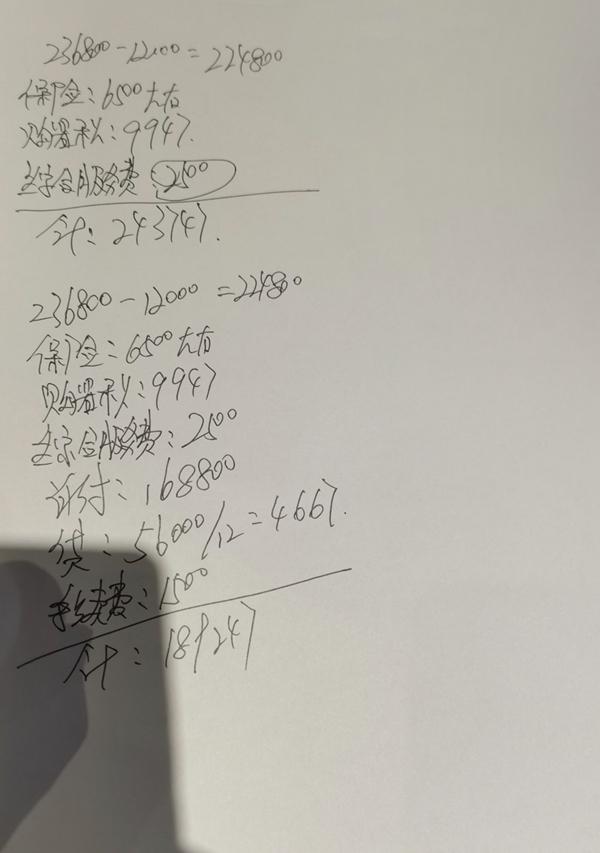 236800-12000=224800
保险：6500左右
购置税：9947.
综合服务费：2500
合计：243747.
236800-12000=224800
保险：6500左右
购置税：9947
综合服务费：2500
首付：168800
贷：56000/12=4667.
手续费：1500
合计：189247